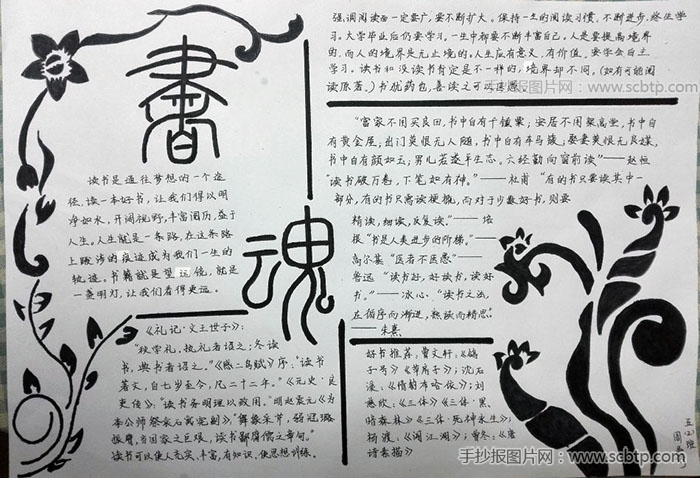 書
魂
读书是通往梦想的一个途
径,读一本好书,让我们得以明
净如水,开阔视野,丰富阅历,益于
人生。人生就是一条路,在这条路
上跋涉的痕迹成为我们一生的
轨迹。书籍就是望远镜,就是
一盏明灯,让我们看得更远。
《礼记·文王世子》:
"秋学礼,执礼者诏之;冬读
书,典书者诏之。"《感二鸟赋》序:"读书
著文,自七岁至今,凡二十二年。"《元史·良
吏传》:"读书务明理以致用。"明赵震元《为
振鹭,当国家之巨艰,读书鄙腐儒之章句。"
读书可以使人充实,丰富,有知识,使思想训练。
强,调阅读面一定要广,要不断扩大。保持一生的阅读习惯,不断进步,终生学
习。大学毕业后仍要学习。一生中都要不断丰富自己。人是要提高境界
的,而人的境界是无止境的。人生应有意义,有价值。要学会自主
学习。读书和没读书肯定是不一样的,境界却不同。(如有可能阅
读原著。)书犹药也,善读之可以医愚。
"富家不用买良田,书中自有千锺粟;安居不用架高堂,书中自
有黄金屋;出门莫恨无人随,书中自有车马簇;娶妻莫恨无良媒,
书中自有颜如玉;男儿若遂平生志,六经勤向窗前读"——赵恒
"读书破万卷,下笔如有神。"——杜甫 "有的书只要读其中一
部分,有的书只需读梗概,而对于少数好书,则要
精读,细读,反复读。"——培
根 "书是人类进步的阶梯。"——
高尔基 "医者不医愚"——
鲁迅 "读书好,好读书,读好
书。"——冰心。"读书之法,
在循序而渐进,熟读而精思"
——朱熹
好书推荐:曹文轩:《鸽
子号》《草房子》;沈石
溪:《情豹布哈依》;刘
慈欣:《三体》《三体·黑
暗森林》《三体·死神永生》;
杨渡:《闯江湖》;曾冬:《唐
诗素描》
五(2)班
手抄报图片网:www.scbtp.com
手抄报图片网:www.scbtp.com